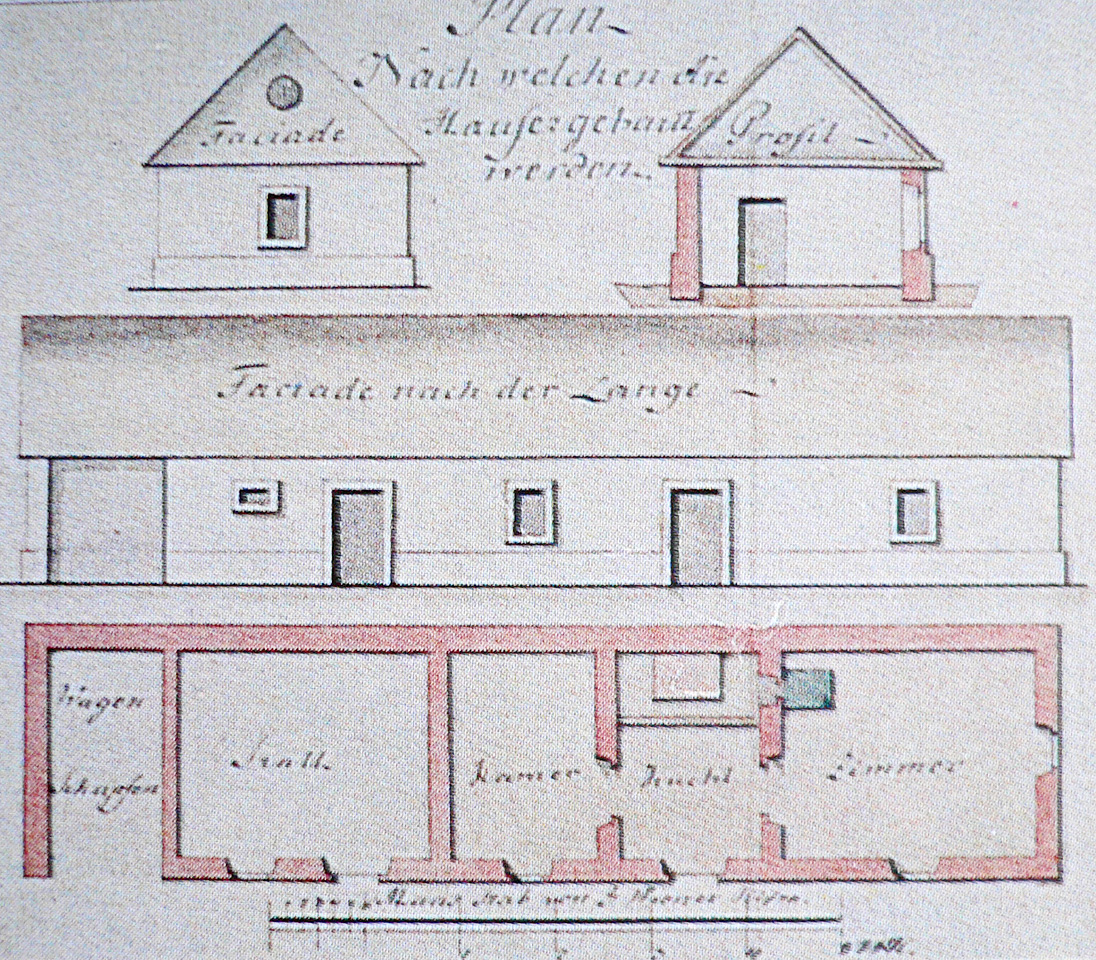 Plan
Nach welchen die
Hauser gebaut
werden
Faciade
Profil
Faciade nach der Lange
Wagen
Schapfen
Stall
Kamer
Kuchl
Zimmer
Maas Stab von